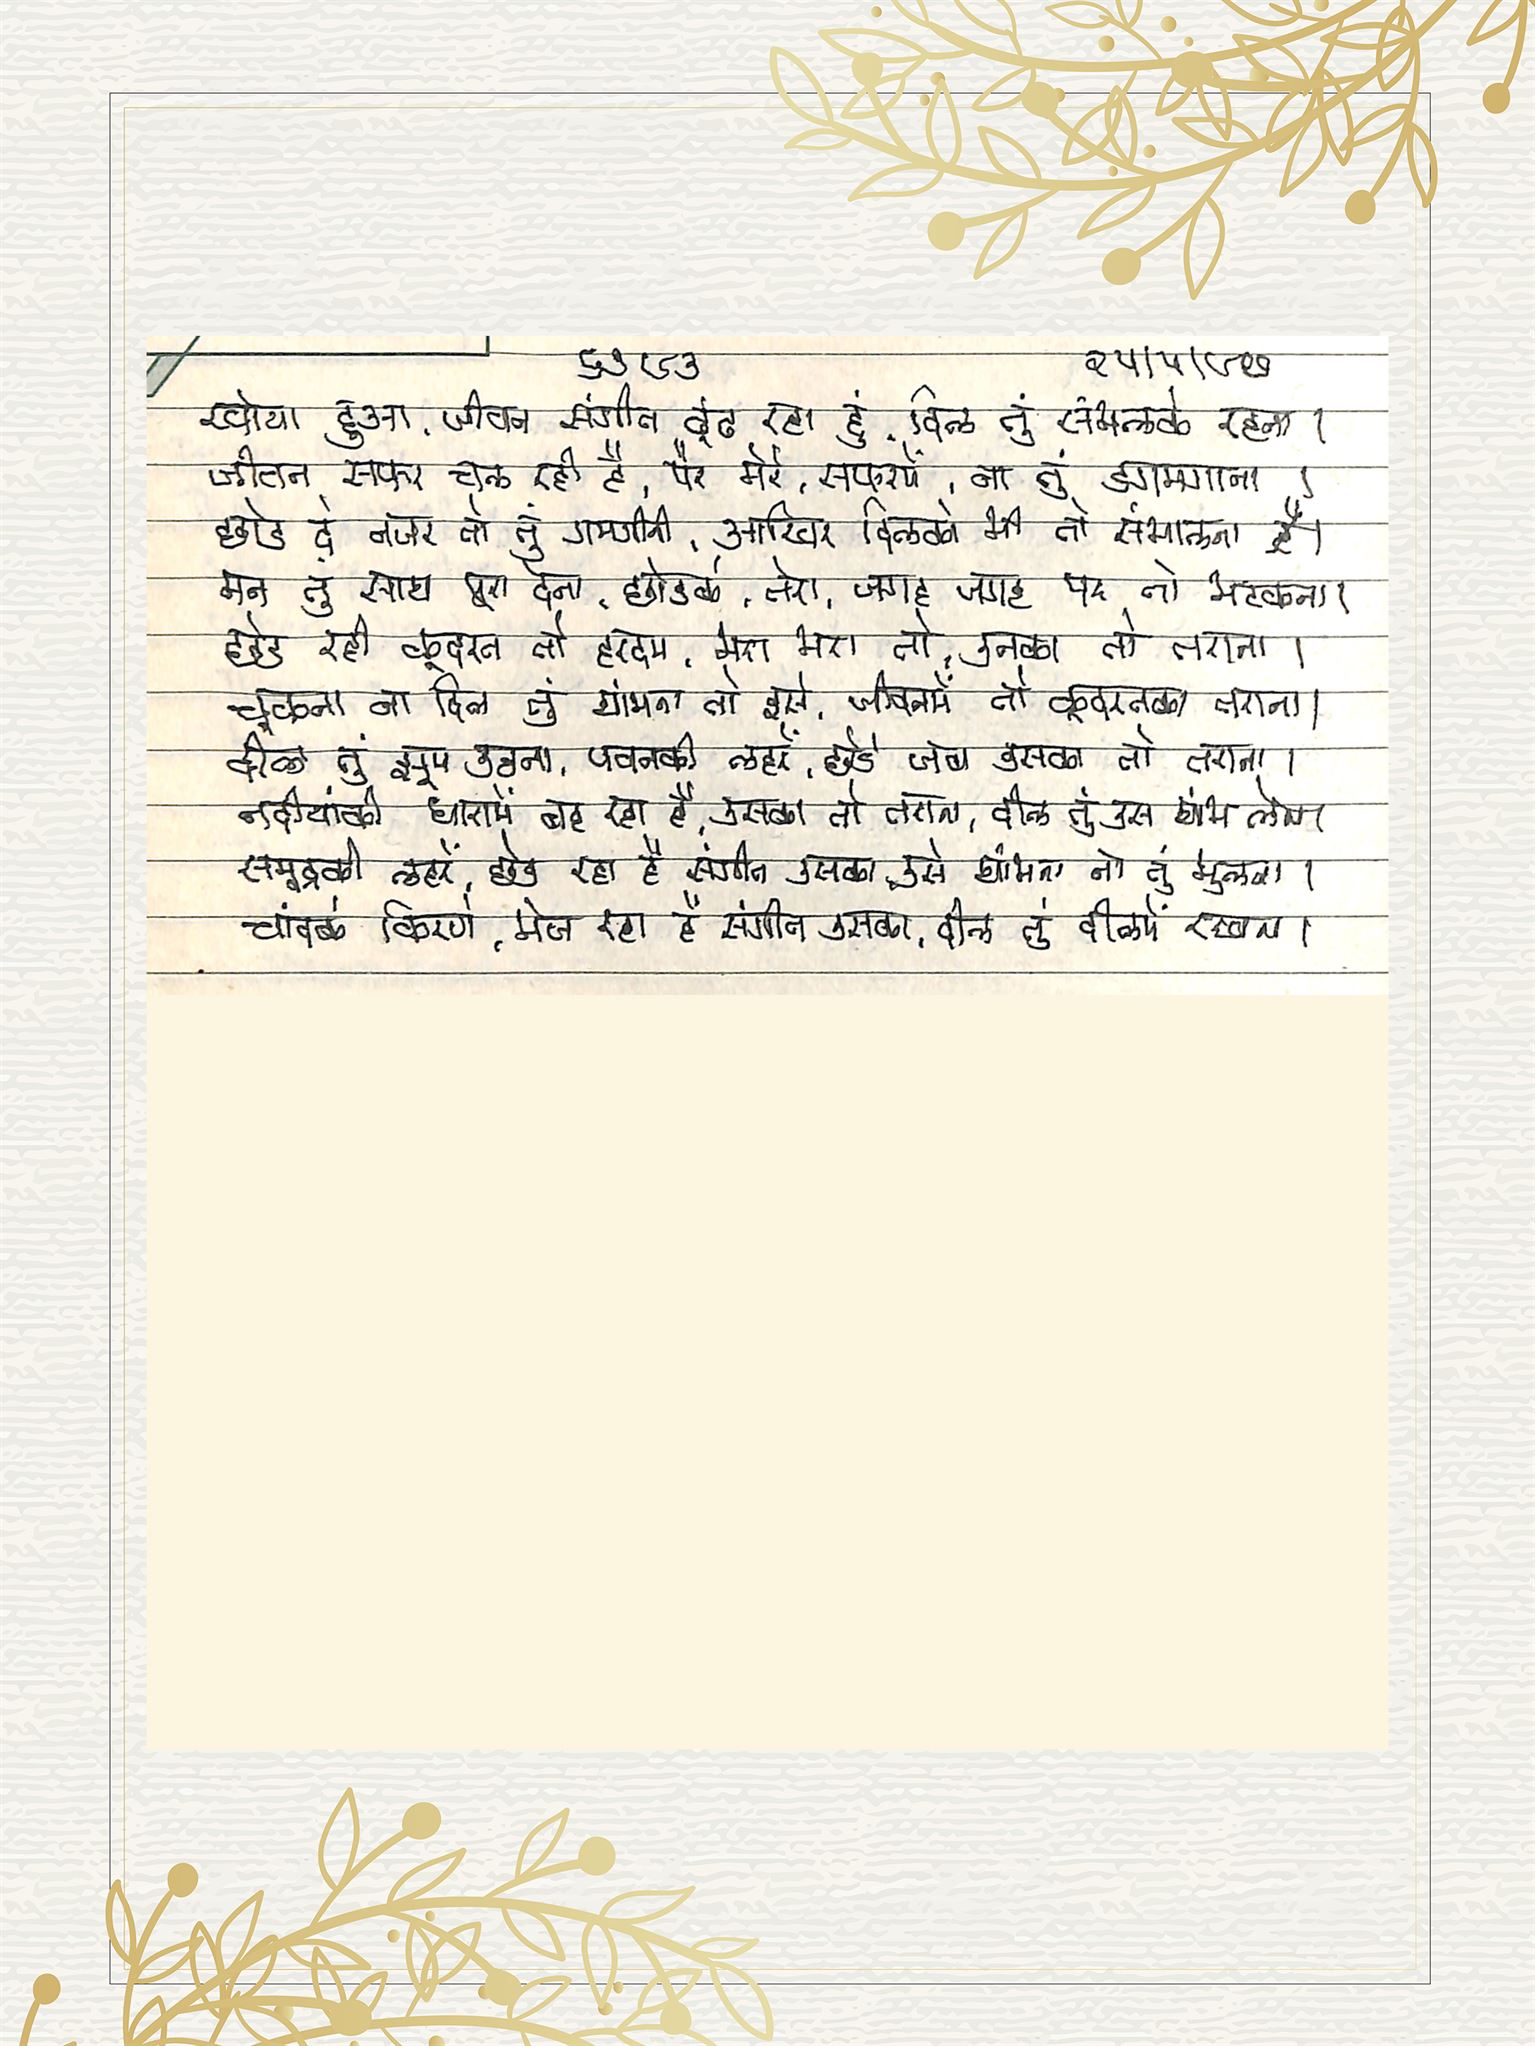 २५/५/८७
खोया हुआ, जीवन संगीत ढूंढ रहा हुं, दिल तुं संभलके रहना ।
जीवन सफर चल रही है, पैर मेरे, सफरमें, ना तुं डगमगाना ।
छोड दे नजर तो तुं गमगीनी, आखिर दिलको भी तो संभालना है ।
मन तुं साथ पूरा देना, छोडके, तेरा, जगह जगह पर तो भटकना ।
छेड रही कूदरत तो हरदम, भरा भरा तो, उनका तो तराना ।
चूकना ना दिल तुं थांभना तो इसे, जीवनमें तो कूदरतका तराना ।
दील तुं झूम उठना, पवनकी लहरें, छेडे जब उसका तो तराना ।
नदीयांकी धारामें बह रहा है, उसका तो तराना, दील तुं उस थांभ लेना ।
समुद्रकी लहरें, छेड रहा है संगीत उसका, उसे थांभना तो तुं भुलना ।
चांदके किरणें, भेज रहा है संगीत उसका, दील तुं दीलमें रखना ।